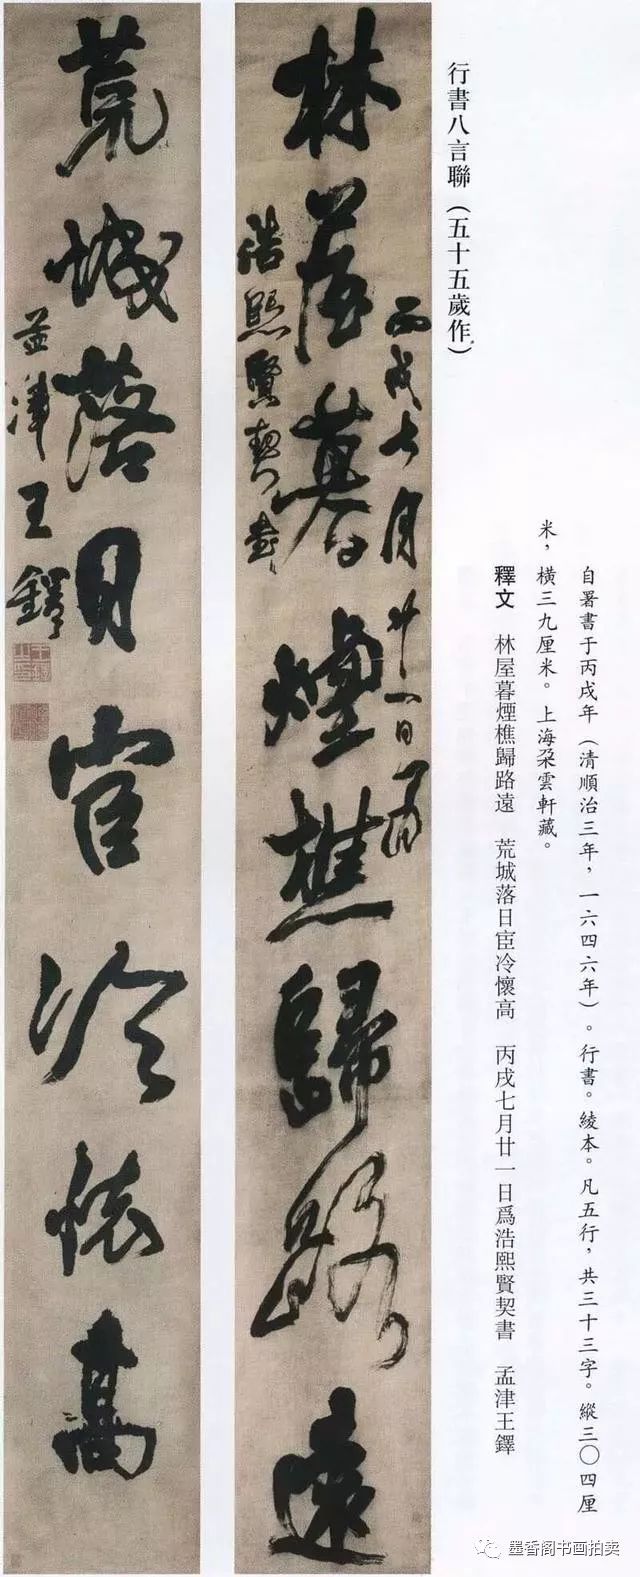 行書八言聯（五十五歲作）
自署書于丙戌年（清順治三年，一六四六年）。行書。綾本。凡五行，共三十三字。縱三〇四厘
米，橫三九厘米。上海朵雲軒藏。
釋文　林屋暮煙樵歸路遠　荒城落日宦冷懷高　丙戌七月廿一日爲浩熙賢契書　孟津王鐸
丙戌七月廿一日爲
林屋暮煙樵歸路遠
浩熙賢契書
荒城落日宦冷懷高
孟津王鐸
墨香阁书画拍卖